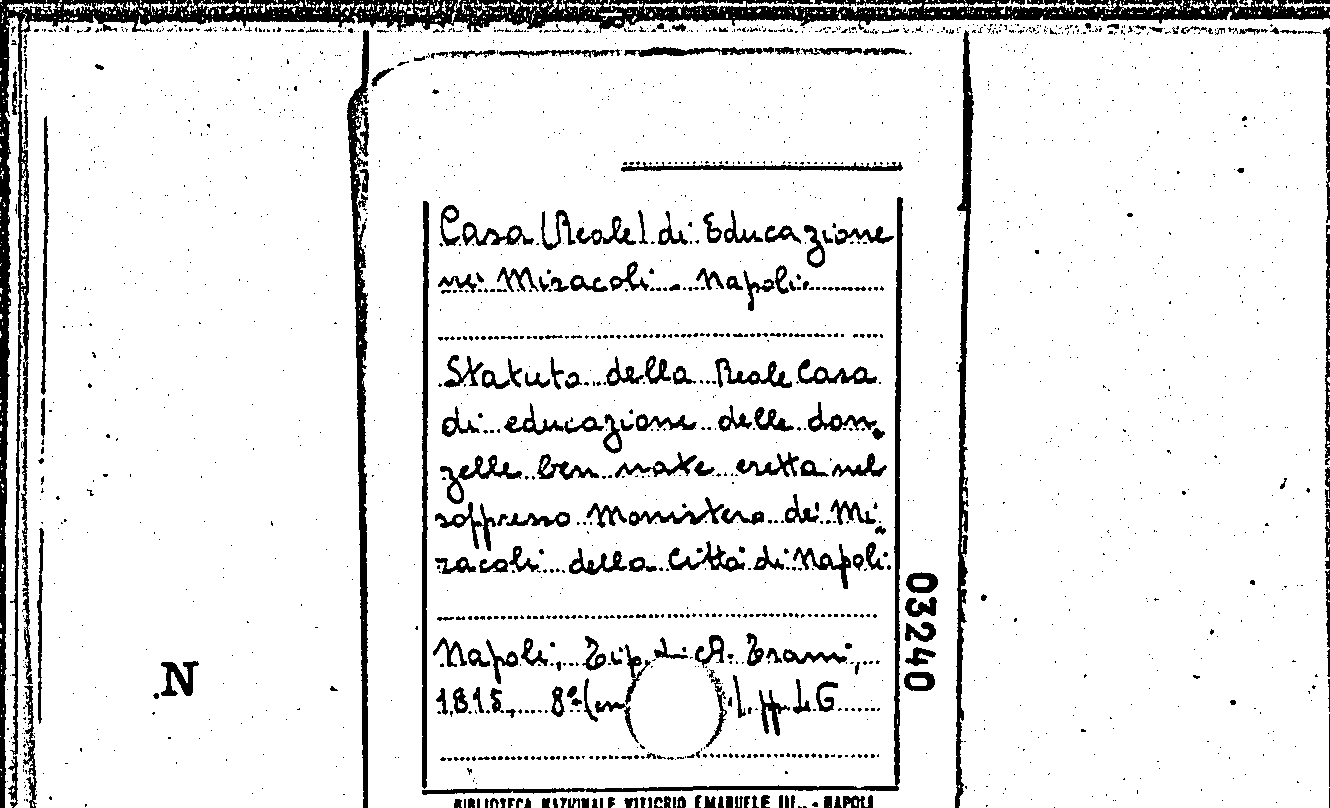 Casa (Reale) di Educazione
nei Miracoli - Napoli.
Statuto della Reale Casa
di educazione delle don-
zelle ben nate eretta nel
soppresso Monistero de' Mi-
racoli della Città di Napoli.
Napoli, Tip. di A. Trani,
1815, 8º (cm
). pp.
03240
N
BIBLIOTECA NAZIONALE VITTORIO EMANUELE III. - NAPOLI